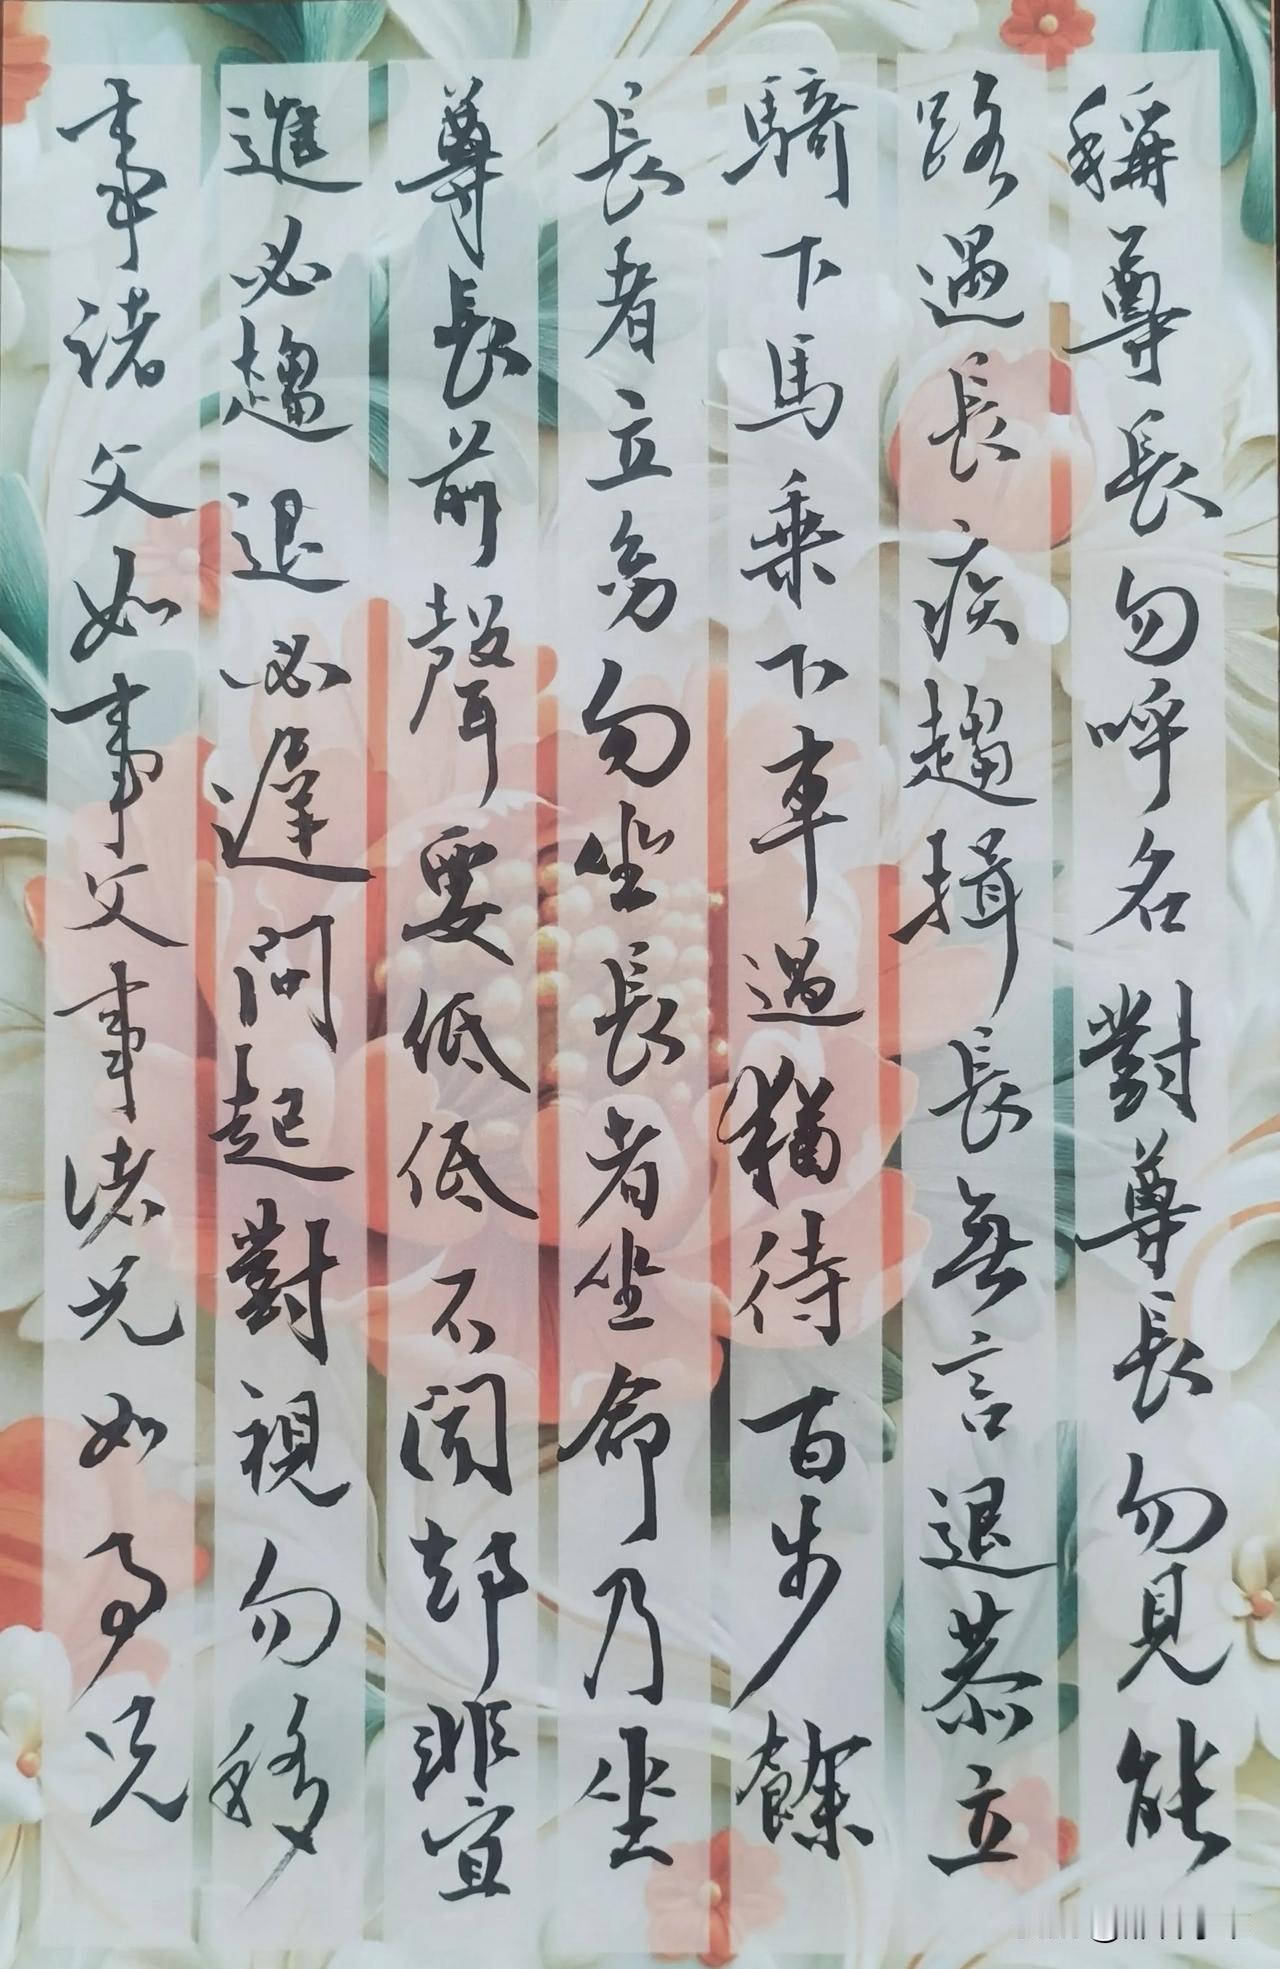 稱尊長勿呼名對尊長勿見能
路遇長疾趨揖長無言退恭立
騎下馬乘下車過猶待百步餘
長者立幼勿坐長者坐命乃坐
尊長前聲要低低不聞却非宜
進必趨退必遲問起對視勿移
事諸父如事父事諸兄如事兄